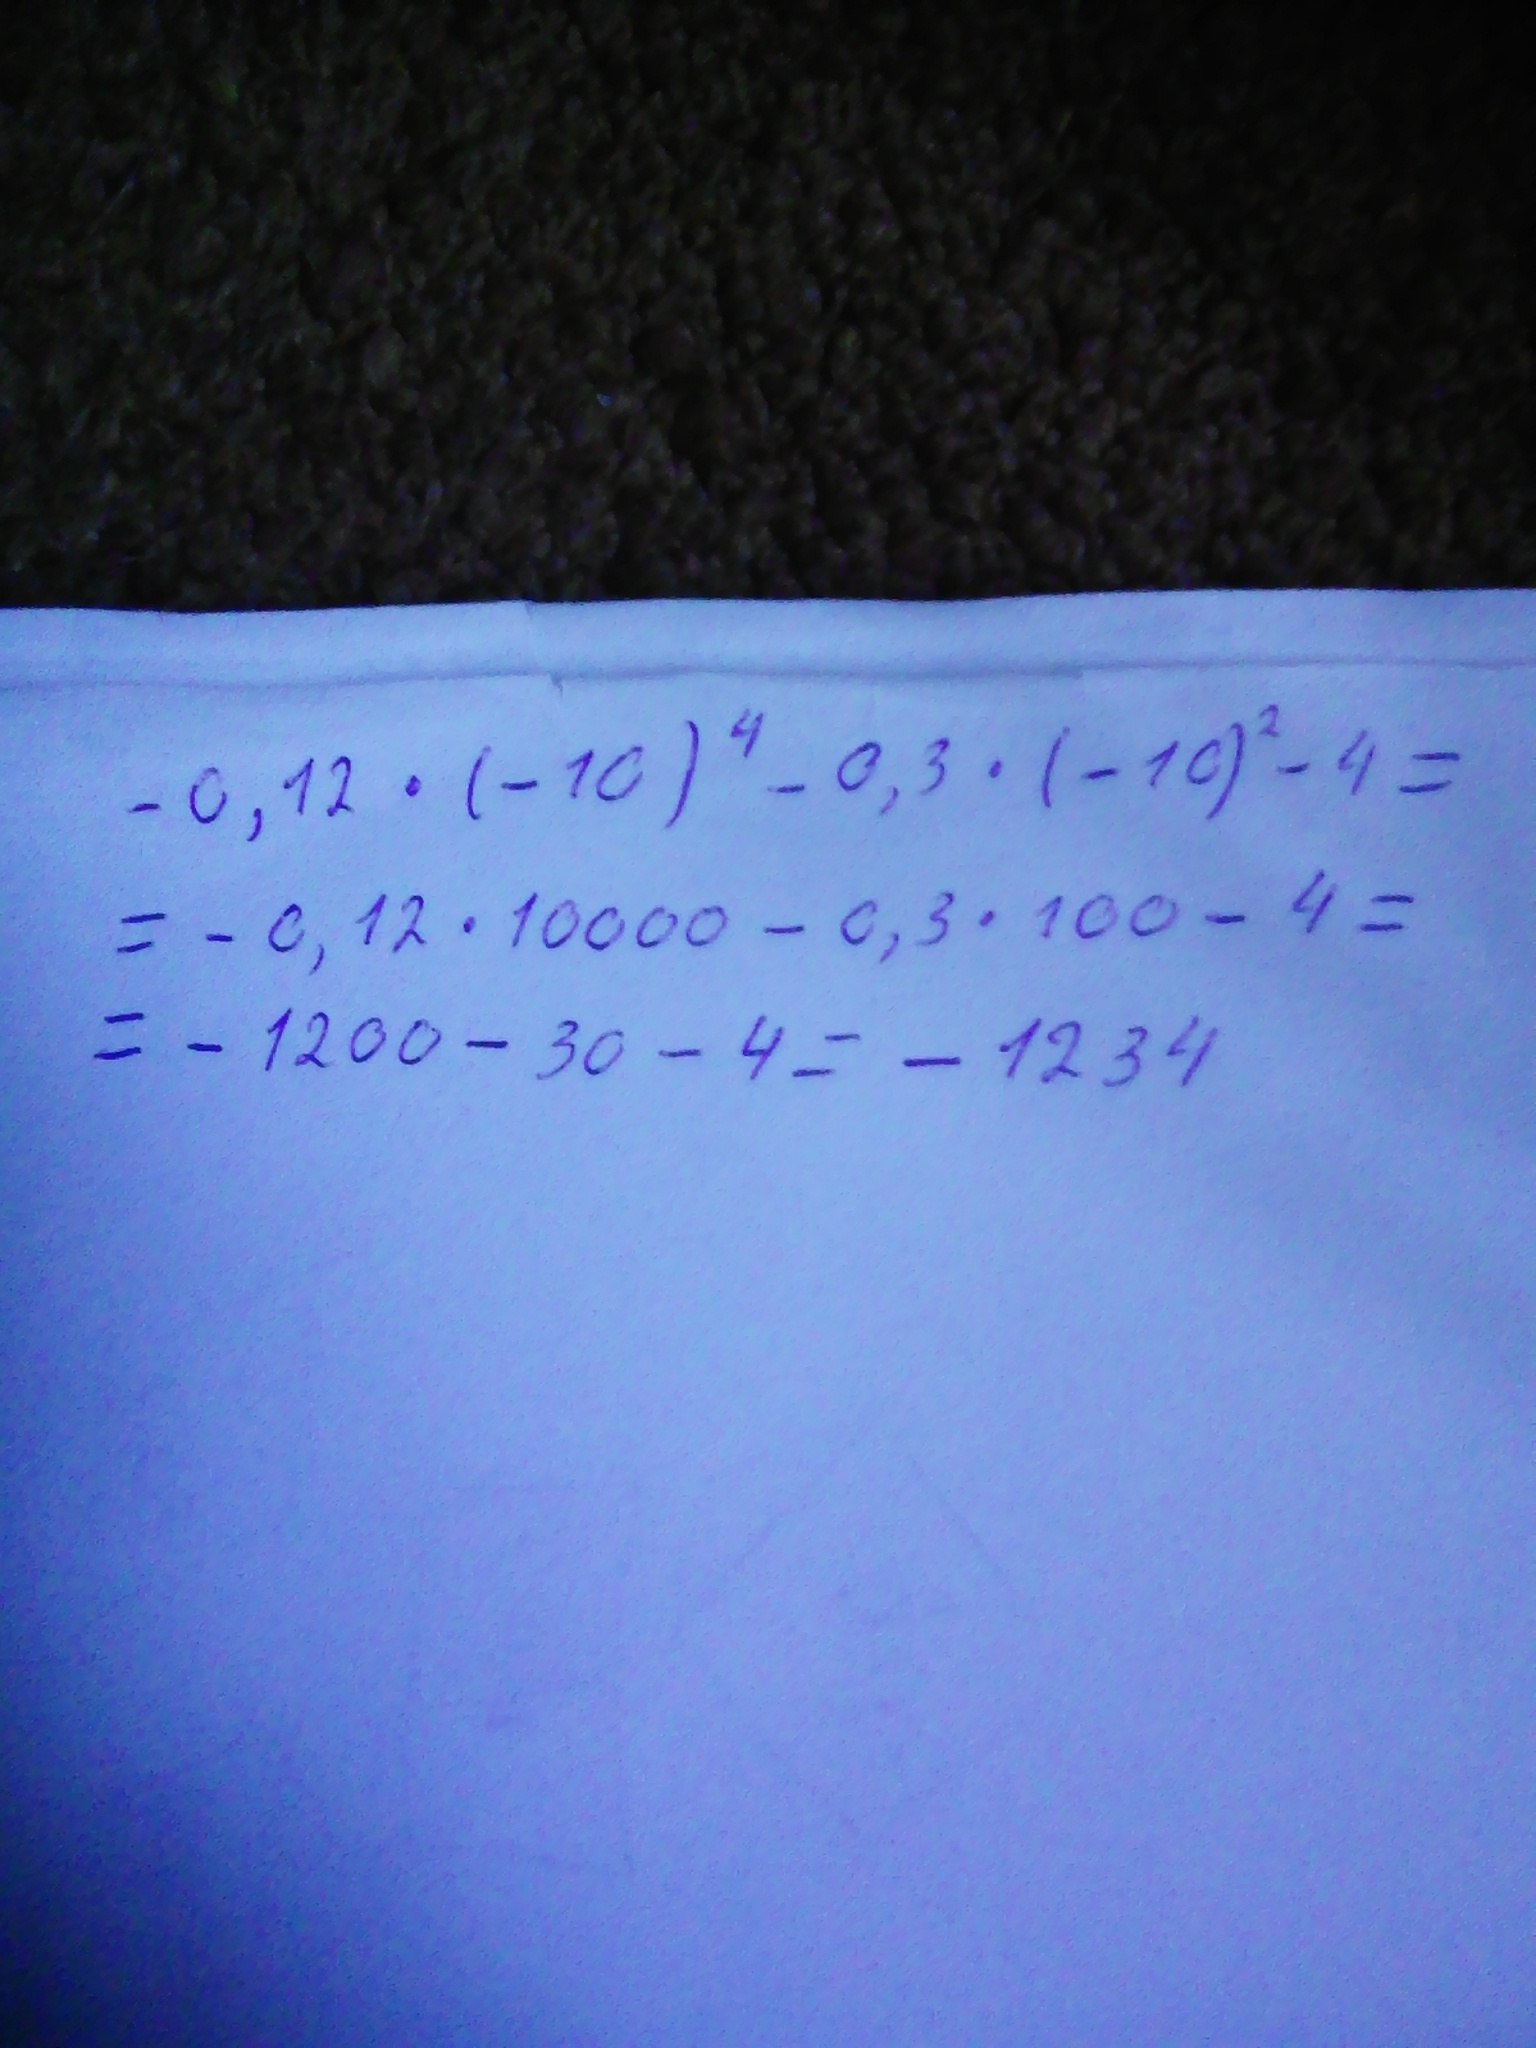 - 0,12 · (-10)⁴ - 0,3 · (-10)² - 4 =
= - 0,12 · 10000 - 0,3 · 100 - 4 =
= - 1200 - 30 - 4 = - 1234